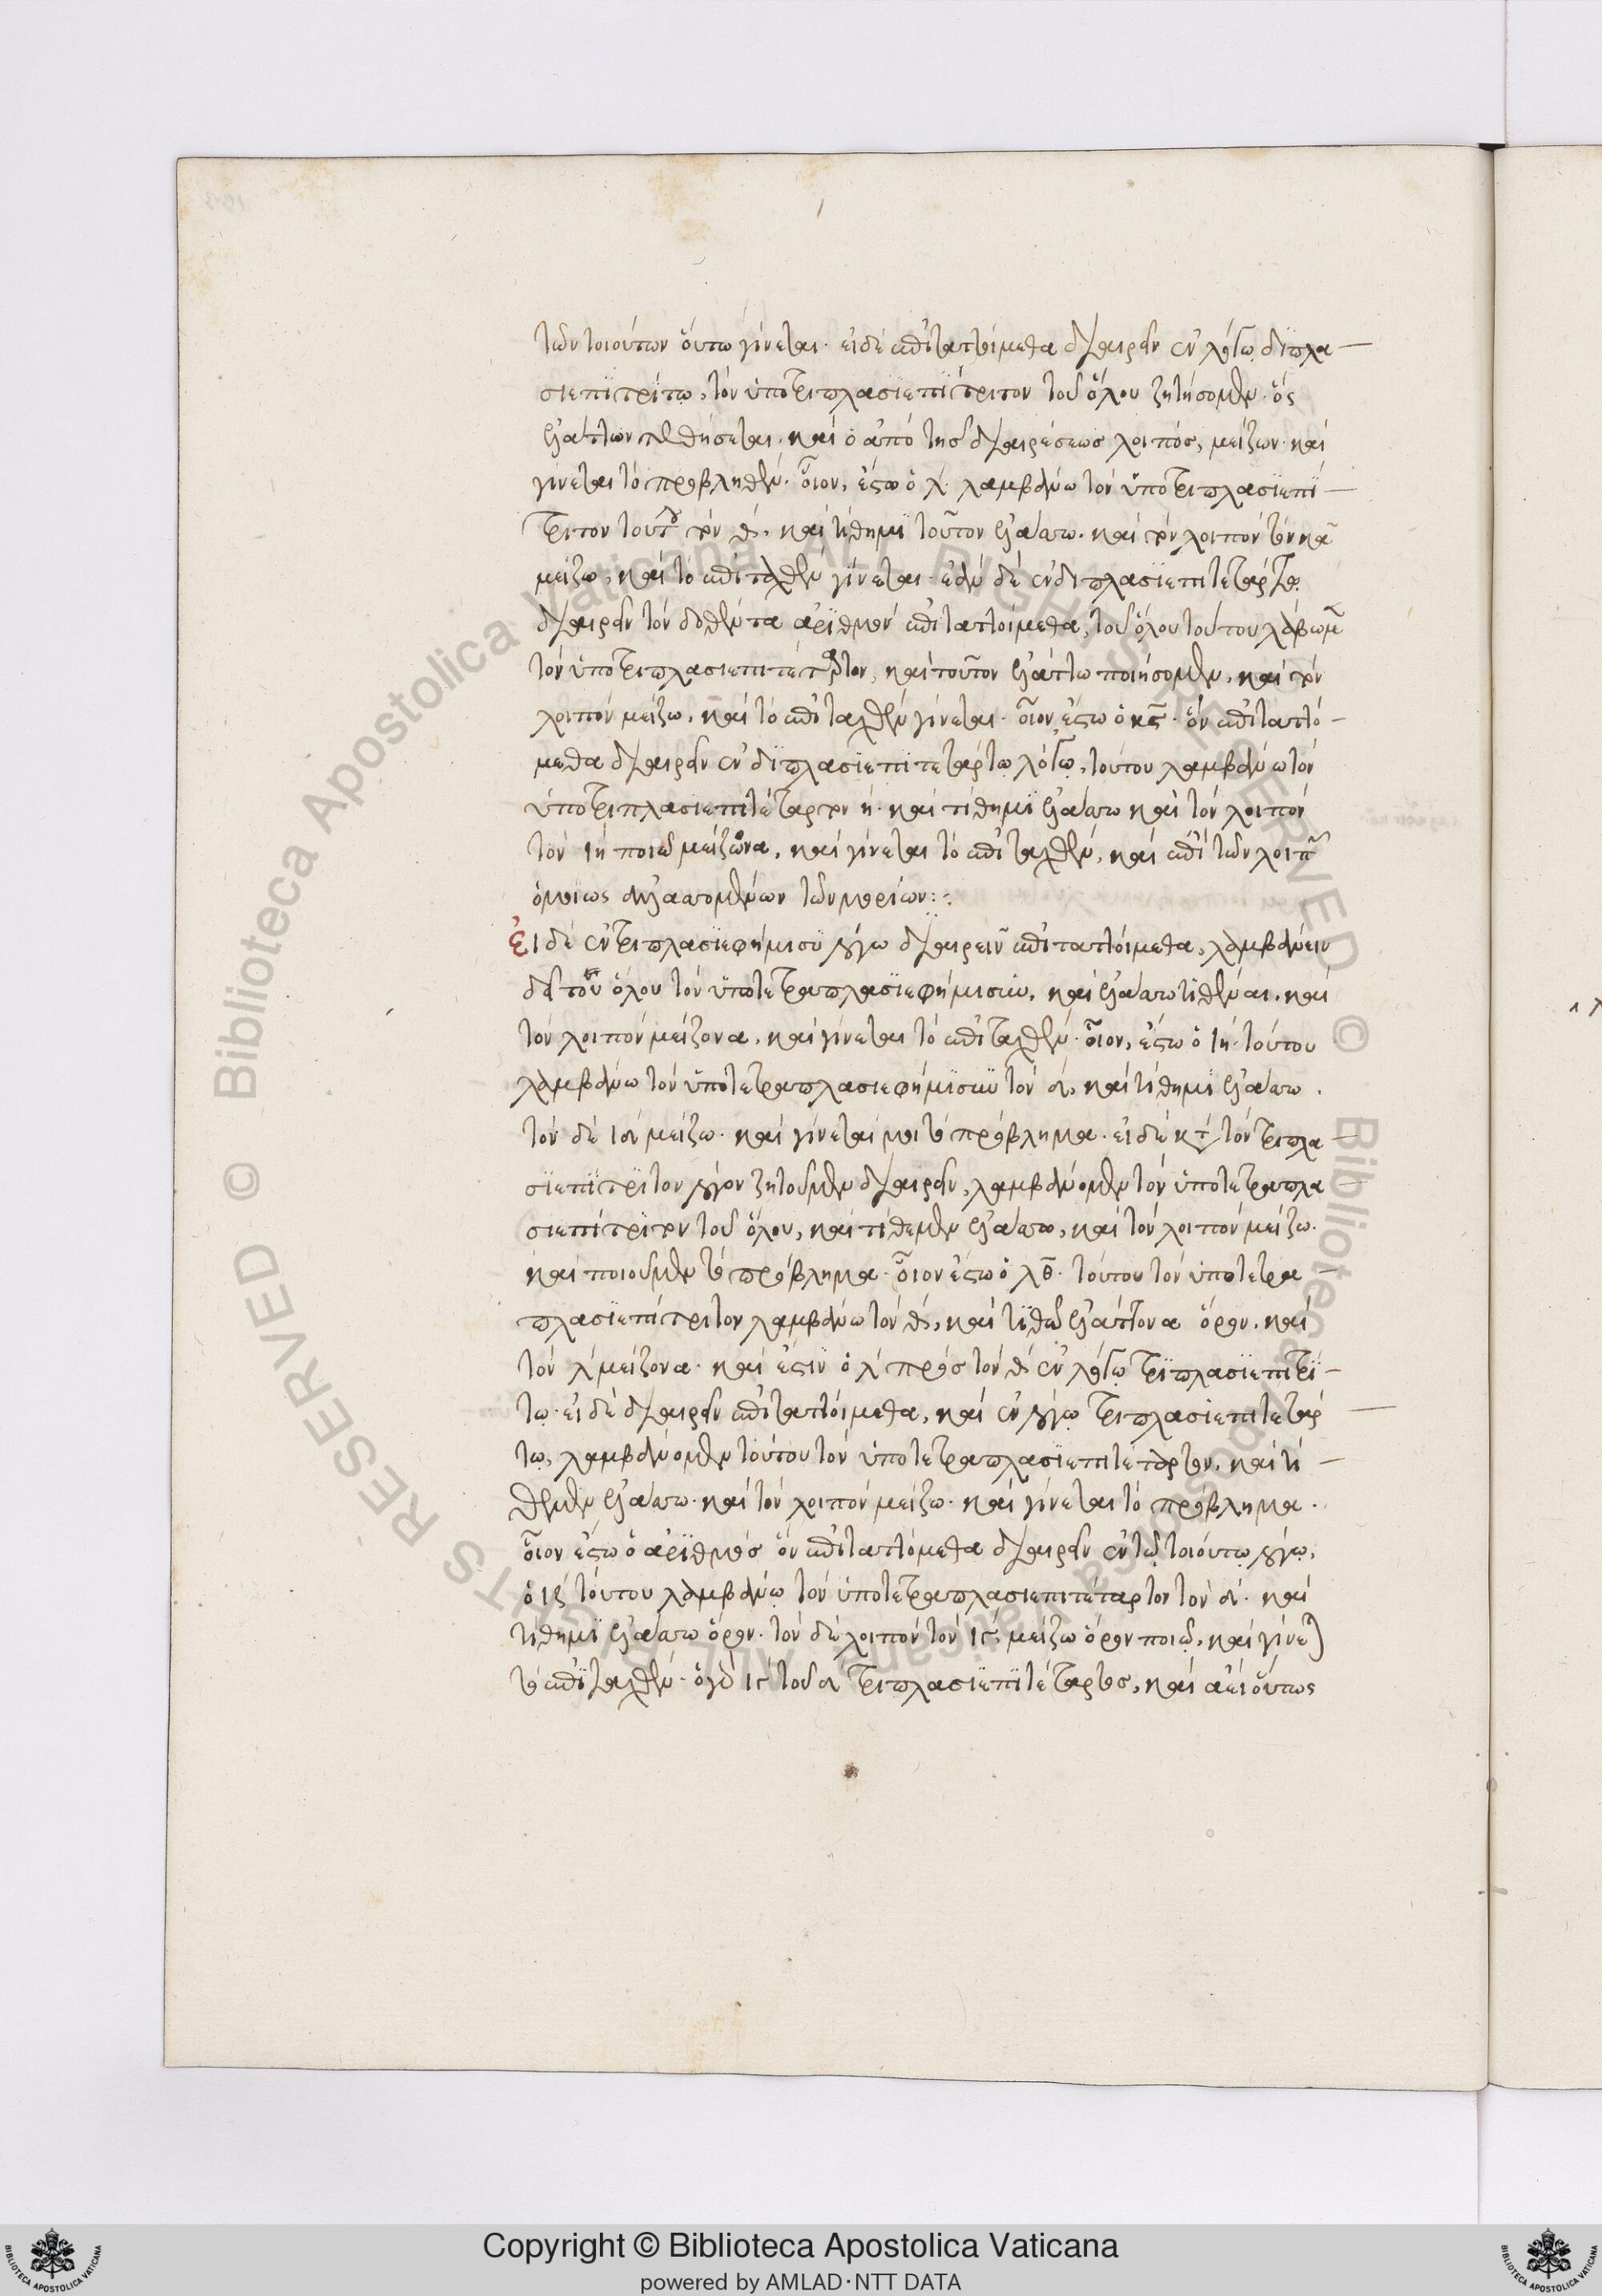 τῶν τοιούτων οὕτω γίνεται. εἰ δὲ ἐπιταττοίμεθα διαιρεῖν ἐν λόγῳ διπλα
σιεπιτρίτῳ, τὸν ὑποτριπλασιεπίτριτον τοῦ ὅλου ζητήσομεν. ὃς
ἐλάττων τεθήσεται. καὶ ὁ ἀπὸ τῆς διαιρέσεως λοιπός, μείζων. καὶ
γίνεται τὸ προβληθέν. οἷον, ἔστω ὁ λ. λαμβάνω τὸν ὑποτριπλασιεπί
τριτον τούτου τὸν θ, καὶ τίθημι τοῦτον ἐλάττω. καὶ τὸν λοιπὸν τὸν κα
μείζω, καὶ τὸ ἐπιταχθὲν γίνεται. ἐὰν δὲ ἐν διπλασιεπιτετάρτῳ
διαιρεῖν τὸν δοθέντα ἀριθμὸν ἐπιταττοίμεθα, τοῦ ὅλου τούτου λάβωμεν
τὸν ὑποτριπλασιεπιτέταρτον, καὶ τοῦτον ἐλάττω ποιήσομεν, καὶ τὸν
λοιπὸν μείζω, καὶ τὸ ἐπιταχθὲν γίνεται. οἷον, ἔστω ὁ κϛ. ὃν ἐπιταττό
μεθα διαιρεῖν ἐν διπλασιεπιτετάρτῳ λόγῳ, τούτου λαμβάνω τὸν
ὑποτριπλασιεπιτέταρτον η. καὶ τίθημι ἐλάττω καὶ τὸν λοιπὸν
τὸν ιη ποιῶ μείζονα, καὶ γίνεται τὸ ἐπιταχθέν, καὶ ἐπὶ τῶν λοιπῶν
ὁμοίως ἐλαττομένων τῶν μορίων:
Εἰ δὲ ἐν τριπλασιεφημίσυ λόγῳ διαιρεῖν ἐπιταττοίμεθα, λαμβάνειν
δεῖ τοῦ ὅλου τὸν ὑποτετραπλασιεφήμισυν, καὶ ἐλάττω τιθέναι. καὶ
τὸν λοιπὸν μείζονα, καὶ γίνεται τὸ ἐπιταχθέν. οἷον, ἔστω ὁ ιη. τούτου
λαμβάνω τὸν ὑποτετραπλασιεφήμισυν τὸν δ, καὶ τίθημι ἐλάττω.
τὸν δὲ ιδ μείζω. καὶ γίνεταί μοι τὸ πρόβλημα. εἰ δὲ κατὰ τὸν τριπλα
σιεπίτριτον λόγον ζητοῦμεν διαιρεῖν, λαμβάνομεν τὸν ὑποτετραπλα
σιεπίτριτον τοῦ ὅλου, καὶ τίθεμεν ἐλάττω, καὶ τὸν λοιπὸν μείζω.
καὶ ποιοῦμεν τὸ πρόβλημα. οἷον ἔστω ὁ λθ. τούτου τὸν ὑποτετρα
πλασιεπίτριτον λαμβάνω τὸν θ, καὶ τιθῶ ἐλάττονα ὅρον. καὶ
τὸν λ μείζονα. καὶ ἔστιν ὁ λ πρὸς τὸν θ ἐν λόγῳ τριπλασιεπιτρί
τῳ. εἰ δὲ διαιρεῖν ἐπιταττοίμεθα, καὶ ἐν λόγῳ τριπλασιεπιτετάρ
τῳ, λαμβάνομεν τούτου τὸν ὑποτετραπλασιεπιτέταρτον, καὶ τί
θεμεν ἐλάττω. καὶ τὸν λοιπὸν μείζω. καὶ γίνεται τὸ πρόβλημα.
οἷον ἔστω ὁ ἀριθμὸς ὃν ἐπιταττόμεθα διαιρεῖν ἐν τῷ τοιούτῳ λόγῳ,
ὁ ιζ τούτου λαμβάνω τὸν ὑποτετραπλασιεπιτέταρτον τὸν δ. καὶ
τίθημι ἐλάττω ὅρον. τὸν δὲ λοιπὸν τὸν ιγ, μείζω ὅρον ποιῶ, καὶ γίνεται
τὸ ἐπιταχθέν. ὁ γὰρ ιγ τοῦ δ τριπλασιεπιτέταρτος, καὶ ἀεὶ οὕτως
Copyright © Biblioteca Apostolica Vaticana
powered by AMLAD·NTT DATA